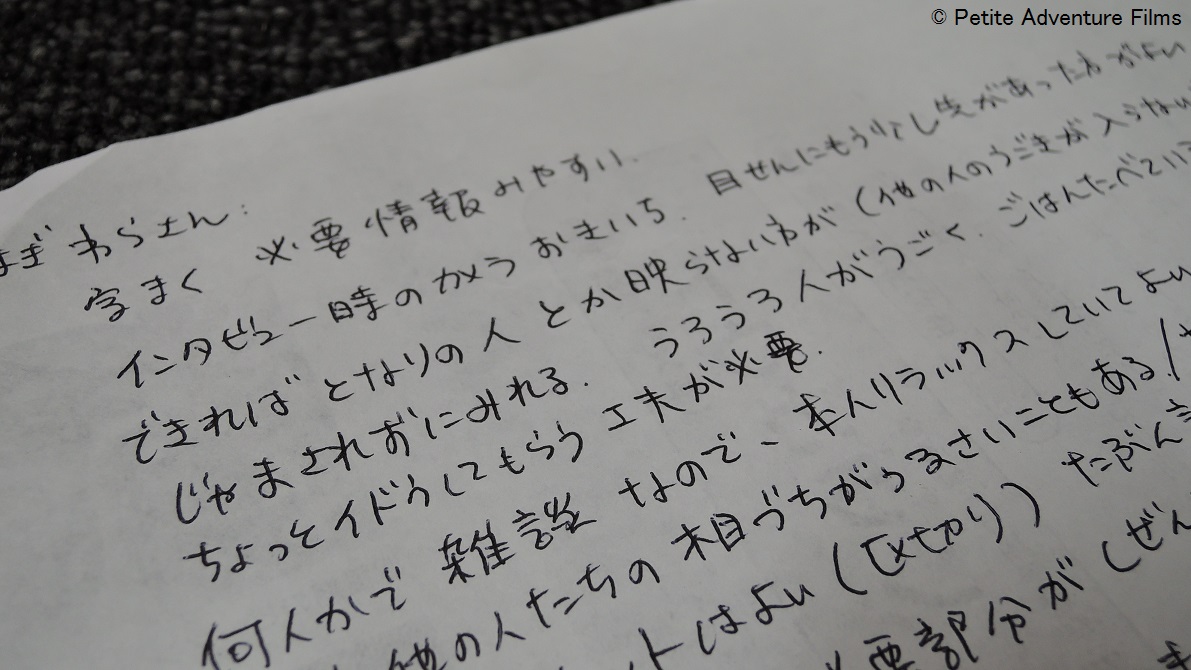 © Petite Adventure Films
ぎわらさん:
字まく 必要情報みやすい.
インタビュー時のカメラおきいち. 目せんにもう少し先があったほうがよい
できればとなりの人とか映らない方が(他の人のうごきが入らない
じゃまされずにみれる. うろうろ人がうごく. ごはんたべてい
ちょっとイドウしてもらう工夫が必要.
何人かで雑談なので- 本人リラックスしていてよい
他の人たちの相づちがうるさいこともある
トはよい ( たぶん
要部分が(ぜん